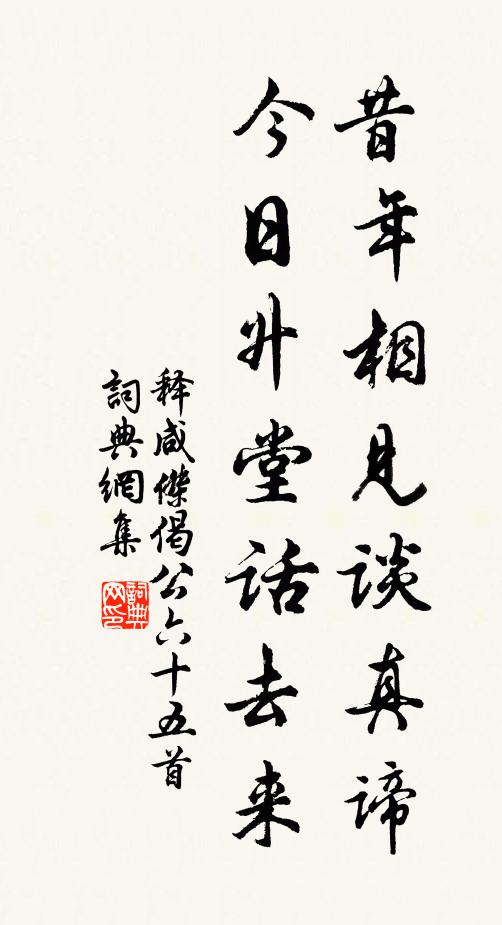 昔年相見談真諦
今日升堂話去来
释咸傑偈公六十五首
詞典網集
詞典网印